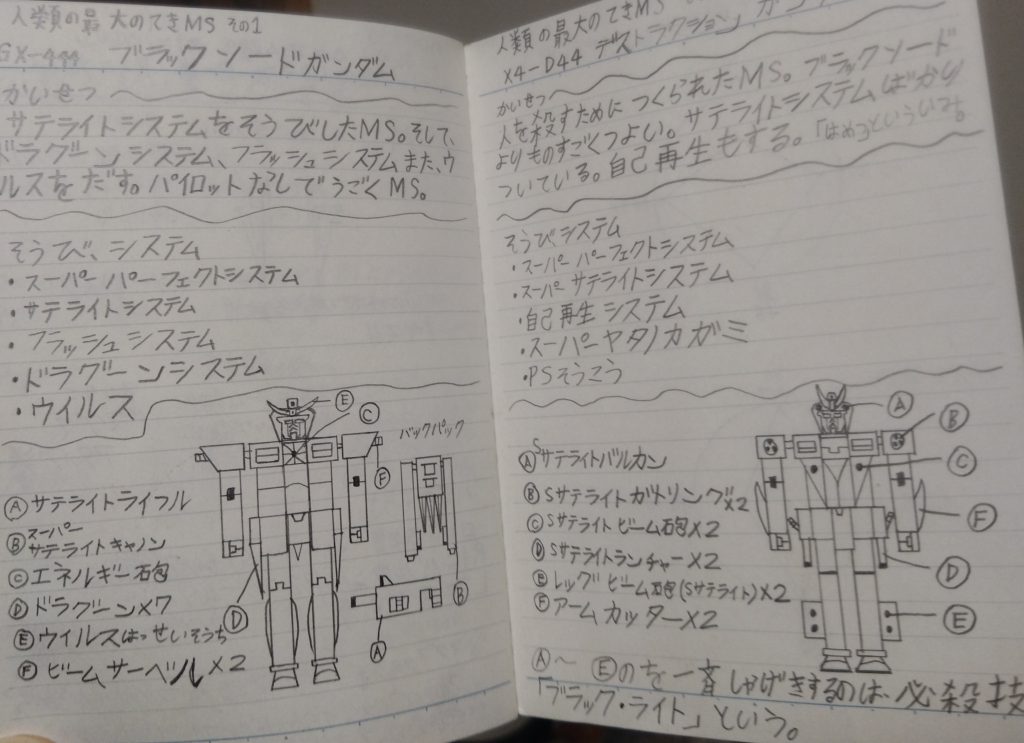 人類の最大のてきMS その1
GX-444 ブラックソードガンダム
かいせつ
サテライトシステムをそうびしたMS。そして、
ドラグーンシステム、フラッシュシステムまた、ウ
ルスをだす。パイロットなしでうごくMS。
そうび、システム
・スーパーパーフェクトシステム
・サテライトシステム
・フラッシュシステム
・ドラグーンシステム
・ウイルス
Ⓐサテライトライフル
Ⓑスーパーサテライトキャノン
Ⓒエネルギー石包
Ⓓドラグーン×7
Ⓔウイルスはっせいそうち
Ⓕビームサーベル×2
バックパック
Ⓔ
Ⓒ
Ⓕ
Ⓓ
Ⓑ
Ⓐ
人類の最大のてきMS
X4-D44 デストラクション」ガン
かいせつ
人を殺すためにつくられたMS。ブラックソード
よりものすごくつよい。サテライトシステムばかり
ついている。自己再生もする。「はめつといういみ。
そうびシステム
・スーパーパーフェクトシステム
・スーパーサテライトシステム
・自己再生システム
・スーパーヤタノカガミ
・PSそうこう
ⒶSサテライトバルカン
ⒷSサテライトガトリング×2
ⒸSサテライトビーム石包×2
ⒹSサテライトランチャー×2
Ⓔレッグビーム石包(Sサテライト)×2
Ⓕアームカッター×2
Ⓐ
Ⓑ
Ⓒ
Ⓕ
Ⓓ
Ⓔ
Ⓐ～Ⓔのを一斉しゃげきするのは、必殺技
「ブラック・ライト」という。